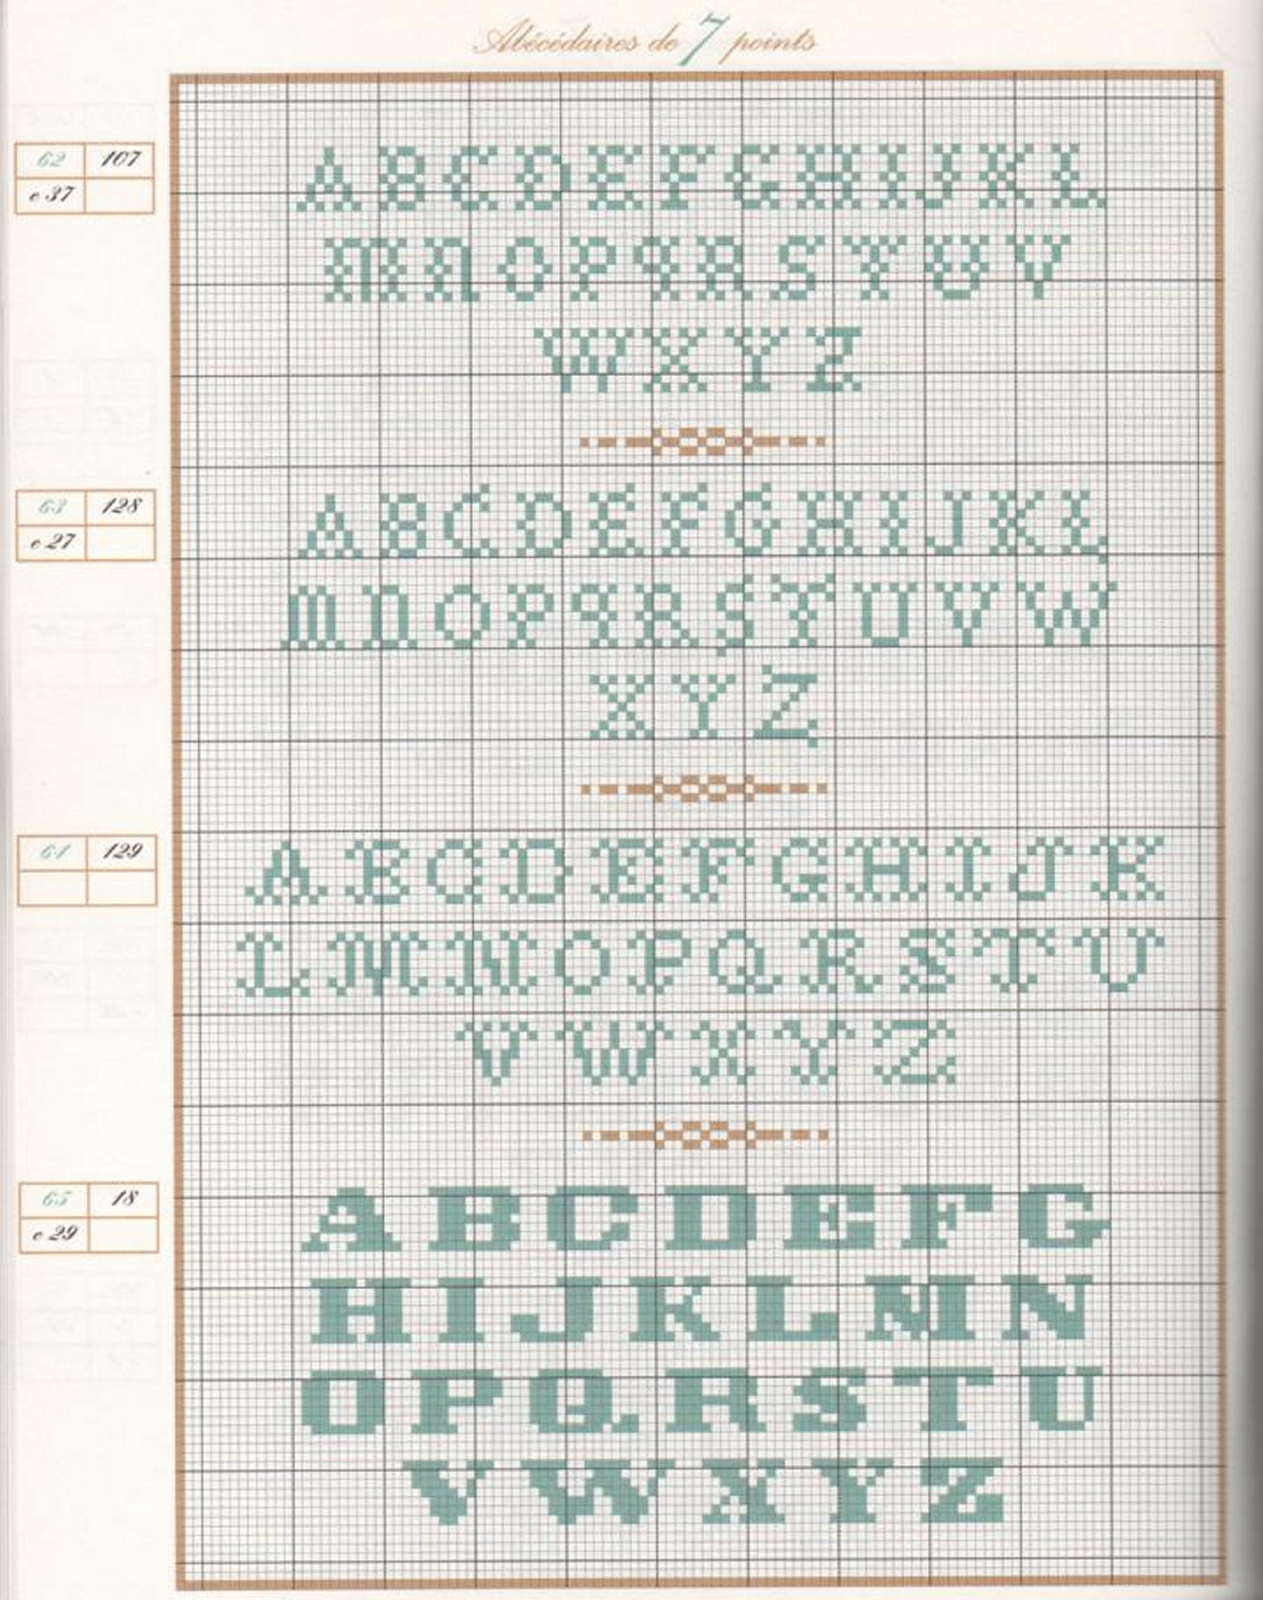 Abécédaires de 7 points
62 107
c 37
A B C D E F G H I J K L
M N O P Q R S T U V
W X Y Z
63 128
c 27
A B C D E F G H I J K L
M N O P Q R S T U V W
X Y Z
64 129
A B C D E F G H I J K
L M N O P Q R S T U
V W X Y Z
65 18
c 29
A B C D E F G
H I J K L M N
O P Q R S T U
V W X Y Z